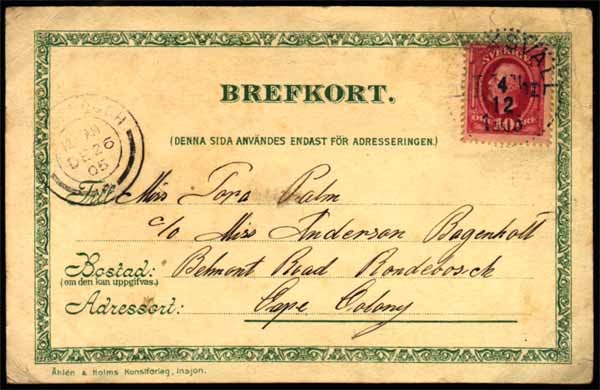 SVALL
SVERIGE
4
12
1905
10
BREFKORT.
(DENNA SIDA ANDVÄNDES ENDAST FÖR ADRESSERINGEN.)
OSCH
AM
DE 26
05
Till Miss Tora Palm
c/o Miss Anderson Bagenholt
Bostad: Belmont Road Rondebosch
(om den kan uppgifvas.)
Adressort: Cape Colony
Åhlén & Holms Konstförlag, Insjon.